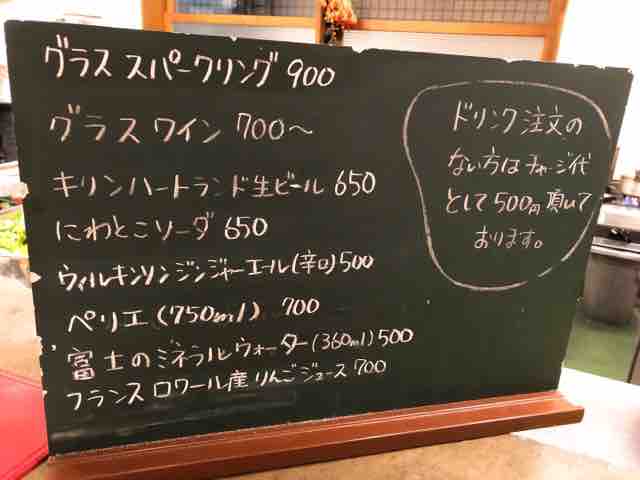 グラス スパークリング 900
グラスワイン 700〜
キリンハートランド生ビール 650
にわとこソーダ 650
ウィルキンソンジンジャーエール(辛口) 500
ペリエ(750ml) 700
富士のミネラルウォーター(360ml) 500
フランスロワール産りんごジュース 700
ドリンク注文の
ない方はチャージ代
として500円頂いて
おります。